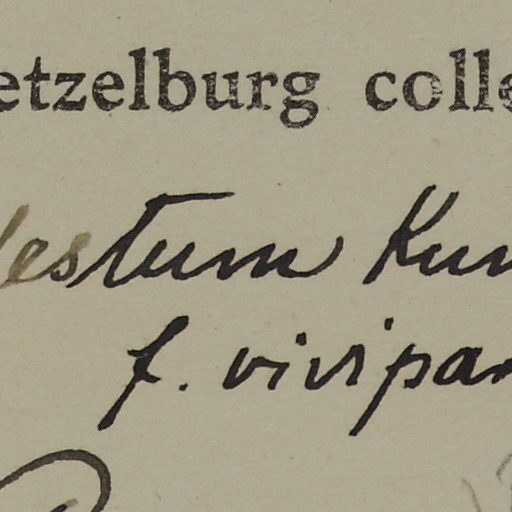 etzelburg colle
lestum Kun
f. vivipar